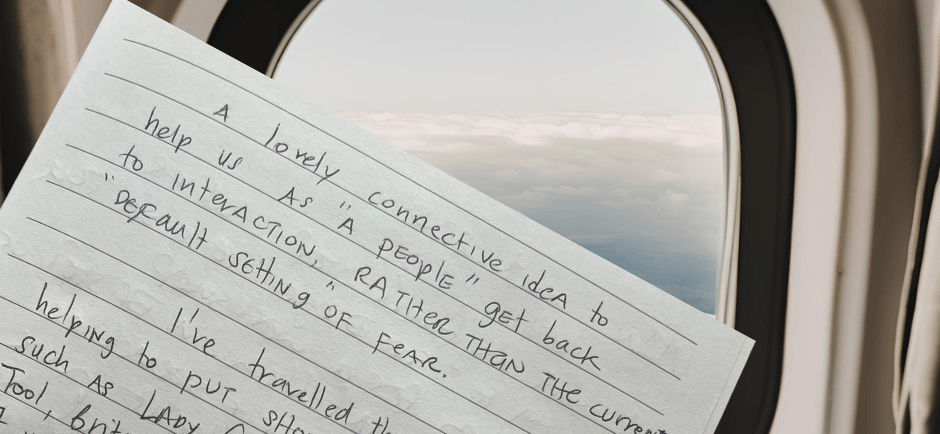 A lovely connective idea to
help us as "A people" get back
to interaction, rather than the current
"default setting" of fear.
I've travelled
helping to put
such as Lady
Tool,